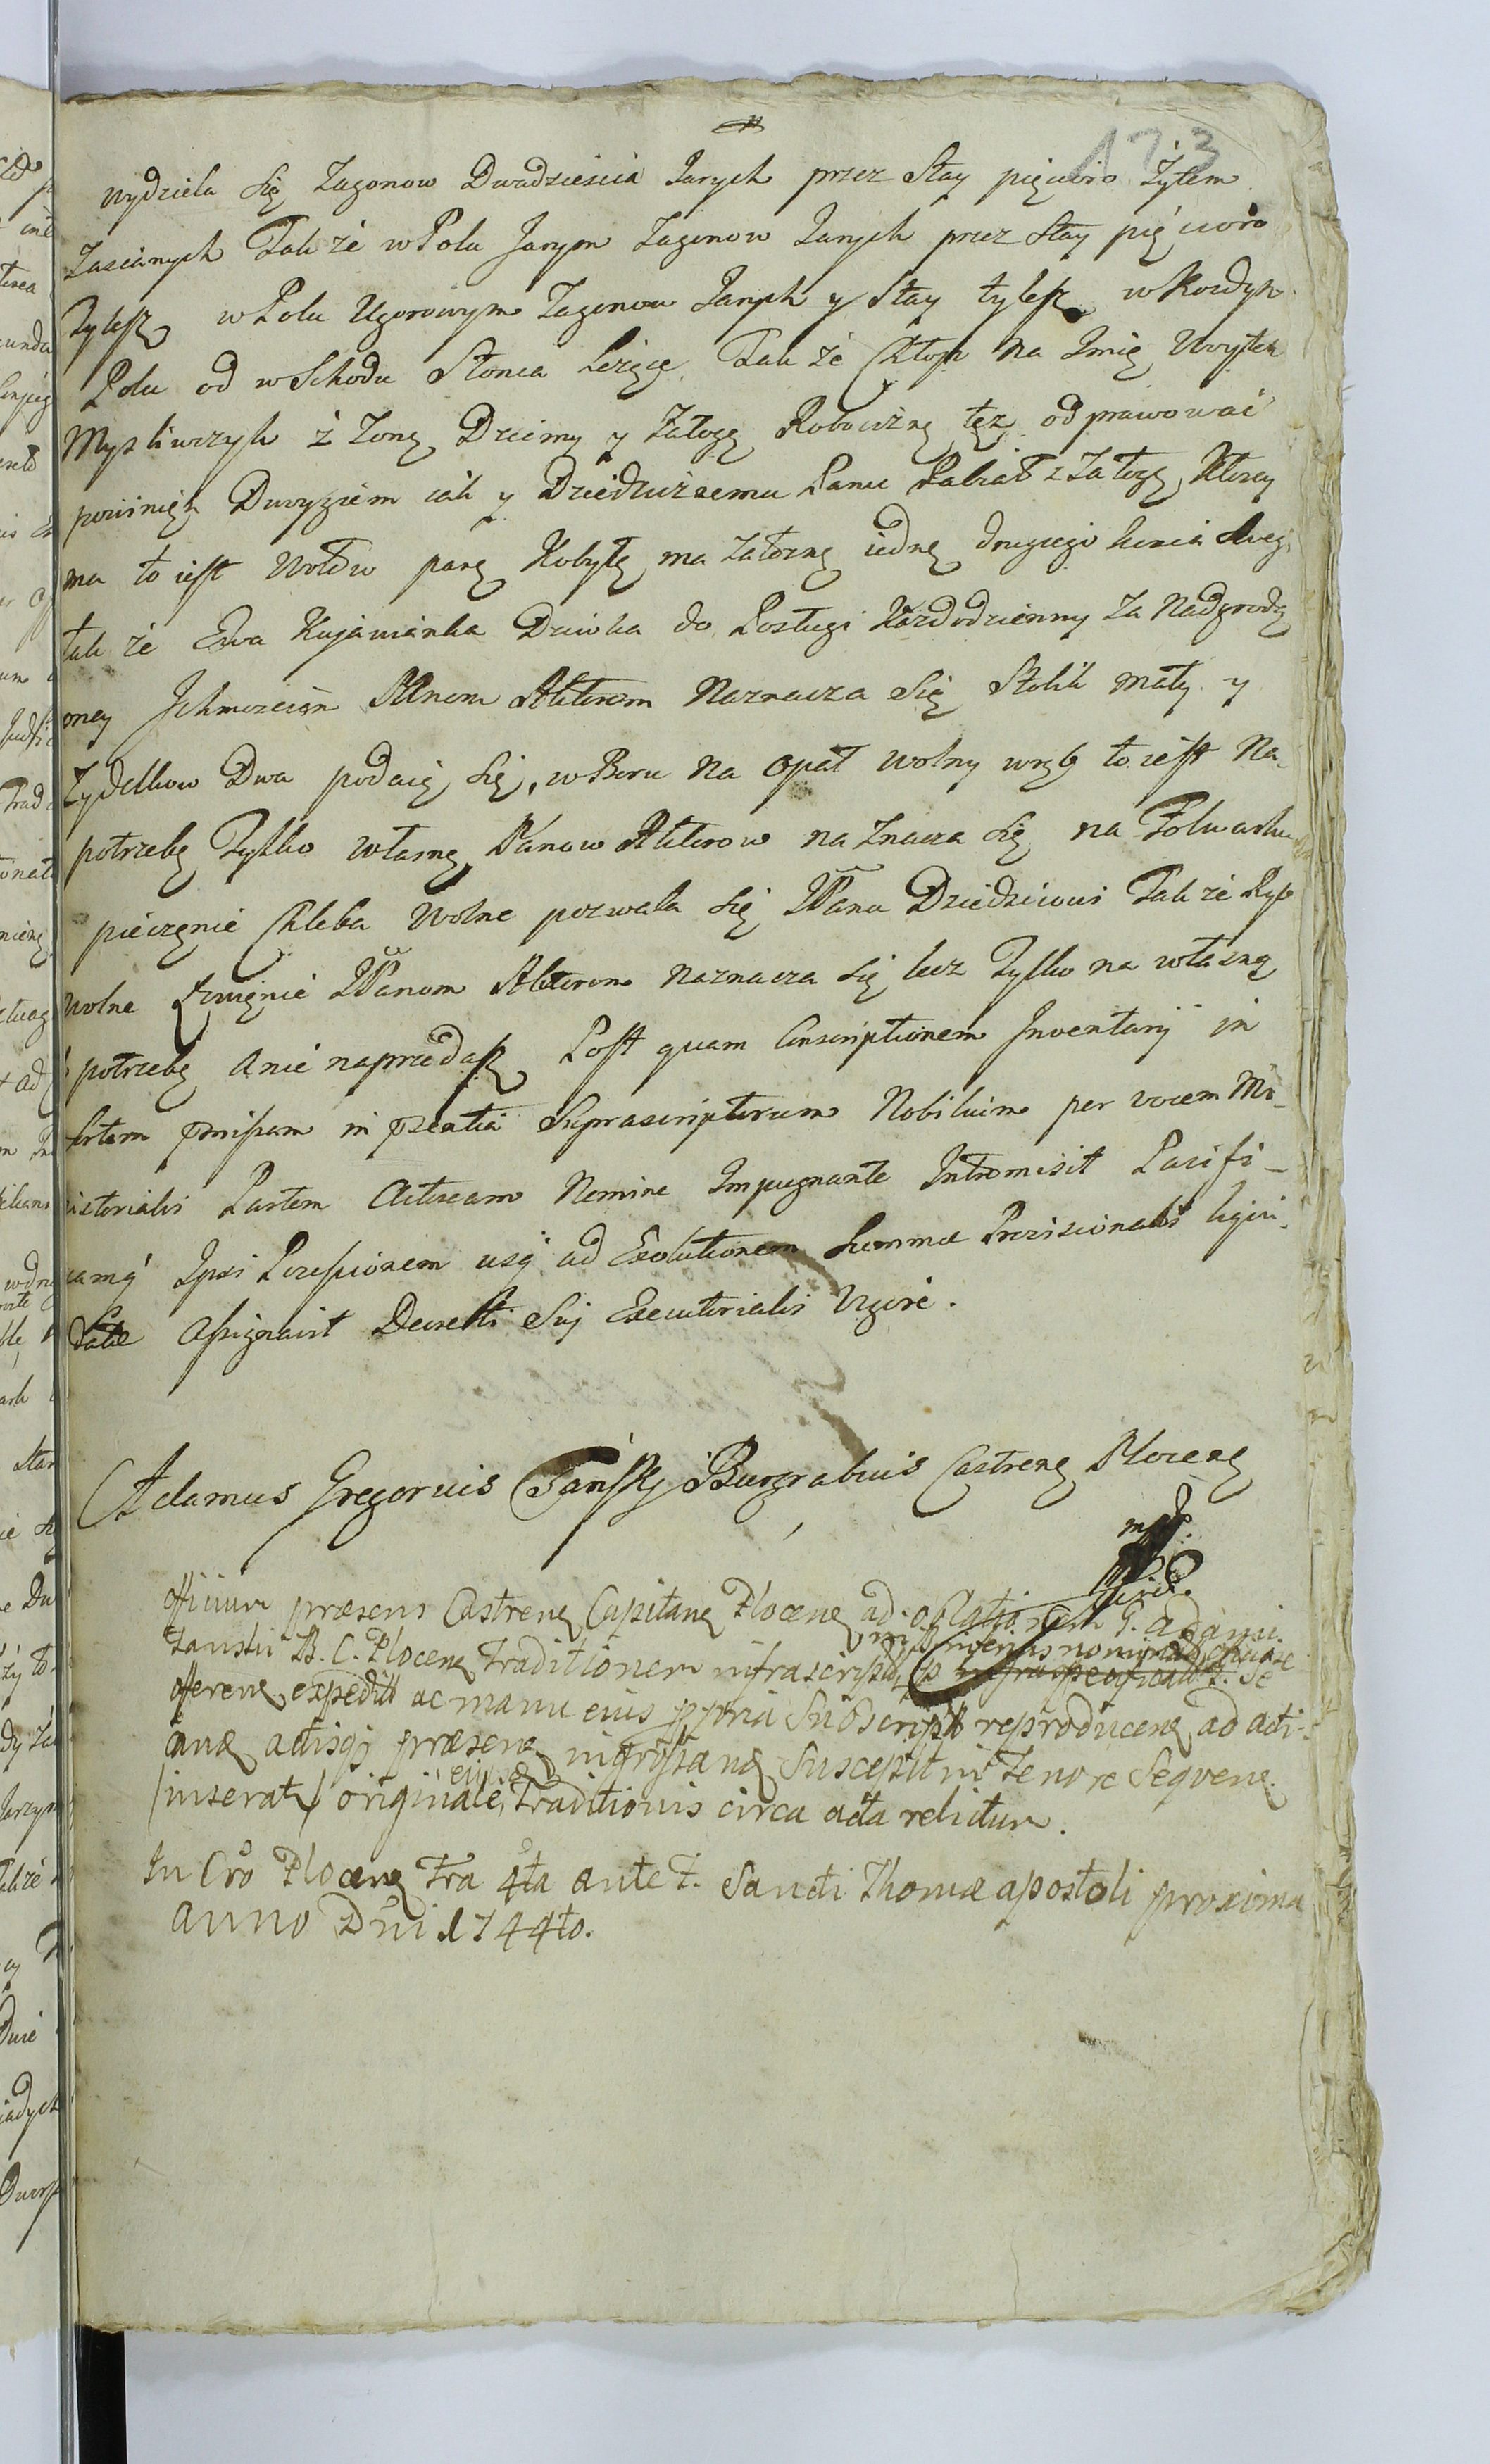 173
wydziela się Zagonow Dwadziescia Jarych przez Stay pięcioro Żytem
Zasianych Takze w Polu Jarym Zagonow Jarych przez Stay pięcioro
Tylesz w Polu Ugorowym Zagonow Jarych y Stay tylesz w Kozdym
Polu od wschodu Słonca Lezące Takze Chłop na Imię Woytek
Mysliwczyk z Zoną Dziecmy y Załogą Robociznę tęz odprawować
powinięn Dwoygiem iak y Dziedzicznemu Panu Rabiał z Załogą, ktorey
ma to iest Wołow parę Kobyłę ma Załozną iedną drugiego konia Swego
takze Ewa Kujawianka Dziwka do Posługi Kazdodzienny Za Nadgrodą
mey Ichmosciom PPnom Aktorom Naznacza Się Stolik mały y
Zydelkow Dwa podaią Się, w Boru na opał wolny wrąb to iest Na
potrzebę Tylko własną Panow Aktorow naznacza Się na Folwarku
pieczęnie Chleba Wolne pozwala Się JPanu Dziedzicowi Takze Ryb
wolne Łowięnie JPanom Aktorom naznacza Się lecz Tylko na własną
potrzebę a nie na przedasz Post quam Conscriptionem Inventarij in
Sortem pmissam in pzentia Suprascriptorum Nobilium per vocem Mi-
nisterialis Partem Actoream Nemine Impugnante Intromisit Pacifi-
camq Ipsi Possessionem usq ad Exolutionem Summae Provisionalis liqui-
datae Assignavit Decreti Sui Executorialis Vigore.
Adamus Gregorius Tański Burgrabius Castrens Plocens
mpp
Officium praesens Castrens Capitane Plocens ad oblationem G. Adami
Tanski B. C. Plocens Traditionem infrascriptam
offerens expedit ac manu eius ppria Subscript reproducens ad acti-
cand actisq praesens ingrossand Suscepit in Tenore Sequens
/inserat/ originale eiusd Traditionis circa acta relictum.
In Cro Plocens Fra 4ta ante F. Sancti Thomae apostoli proxima
anno Dni 1744to.